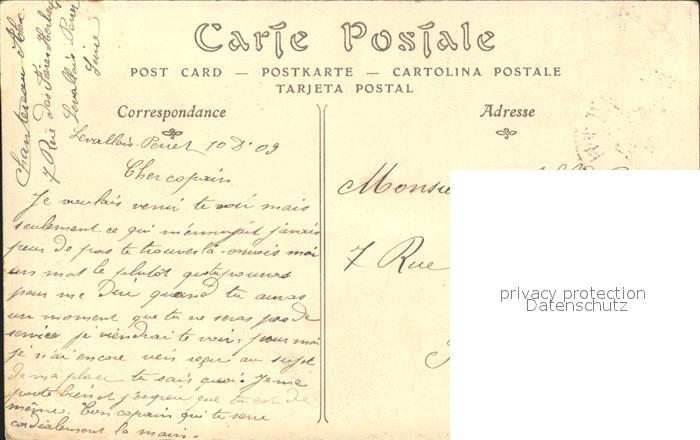 Carte Postale
POST CARD — POSTKARTE — CARTOLINA POSTALE
TARJETA POSTAL
Correspondance
Adresse
7 Rue des
Levallois-Perret
Seine
Levallois-Perret 10 Dr 09
Cher copain
Je voulais venir te voir mais
seulement ce qui m'ennuyait j'avais
peur de pas te trouver là envois moi
un mot le plutôt que tu pourras
pour me dire quand tu auras
un moment que tu ne seras pas de
service je viendrai te voir; pour moi
je n'ai encore rien reçu au sujet
de ma place tu sais quoi. Je me
porte bien et j'espère que tu est de
même. Ton copain qui te serre
cordialement la main.
7 Rue
privacy protection
Datenschutz